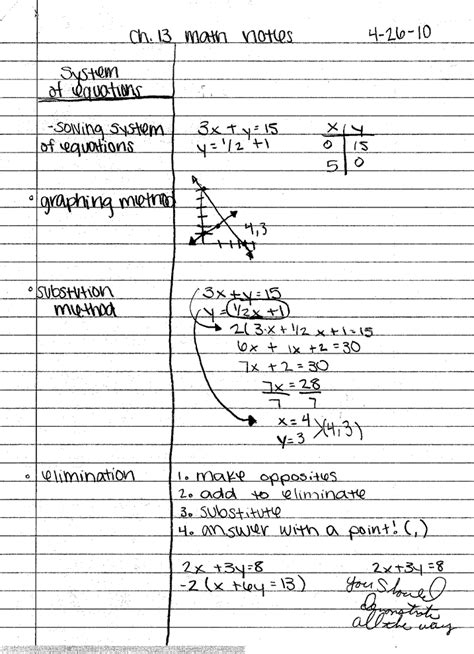 Ch. 13 math notes 4-26-10
System
of equations
-solving system 3x + y = 15 x | y
of equations y = 1/2 + 1 0 | 15
5 | 0
graphing method
4,3
substution 3x + y = 15
method y = 1/2x + 1
2(3x + 1/2 x + 1 = 15
6x + 1x + 2 = 30
7x + 2 = 30
7x = 28
7 7
x = 4
y = 3 (4,3)
elimination 1. make opposites
2. add to eliminate
3. substitute
4. answer with a point! (,)
2x + 3y = 8 2x + 3y = 8
-2(x + 6y = 13) You Should
Demonstrate
all the way